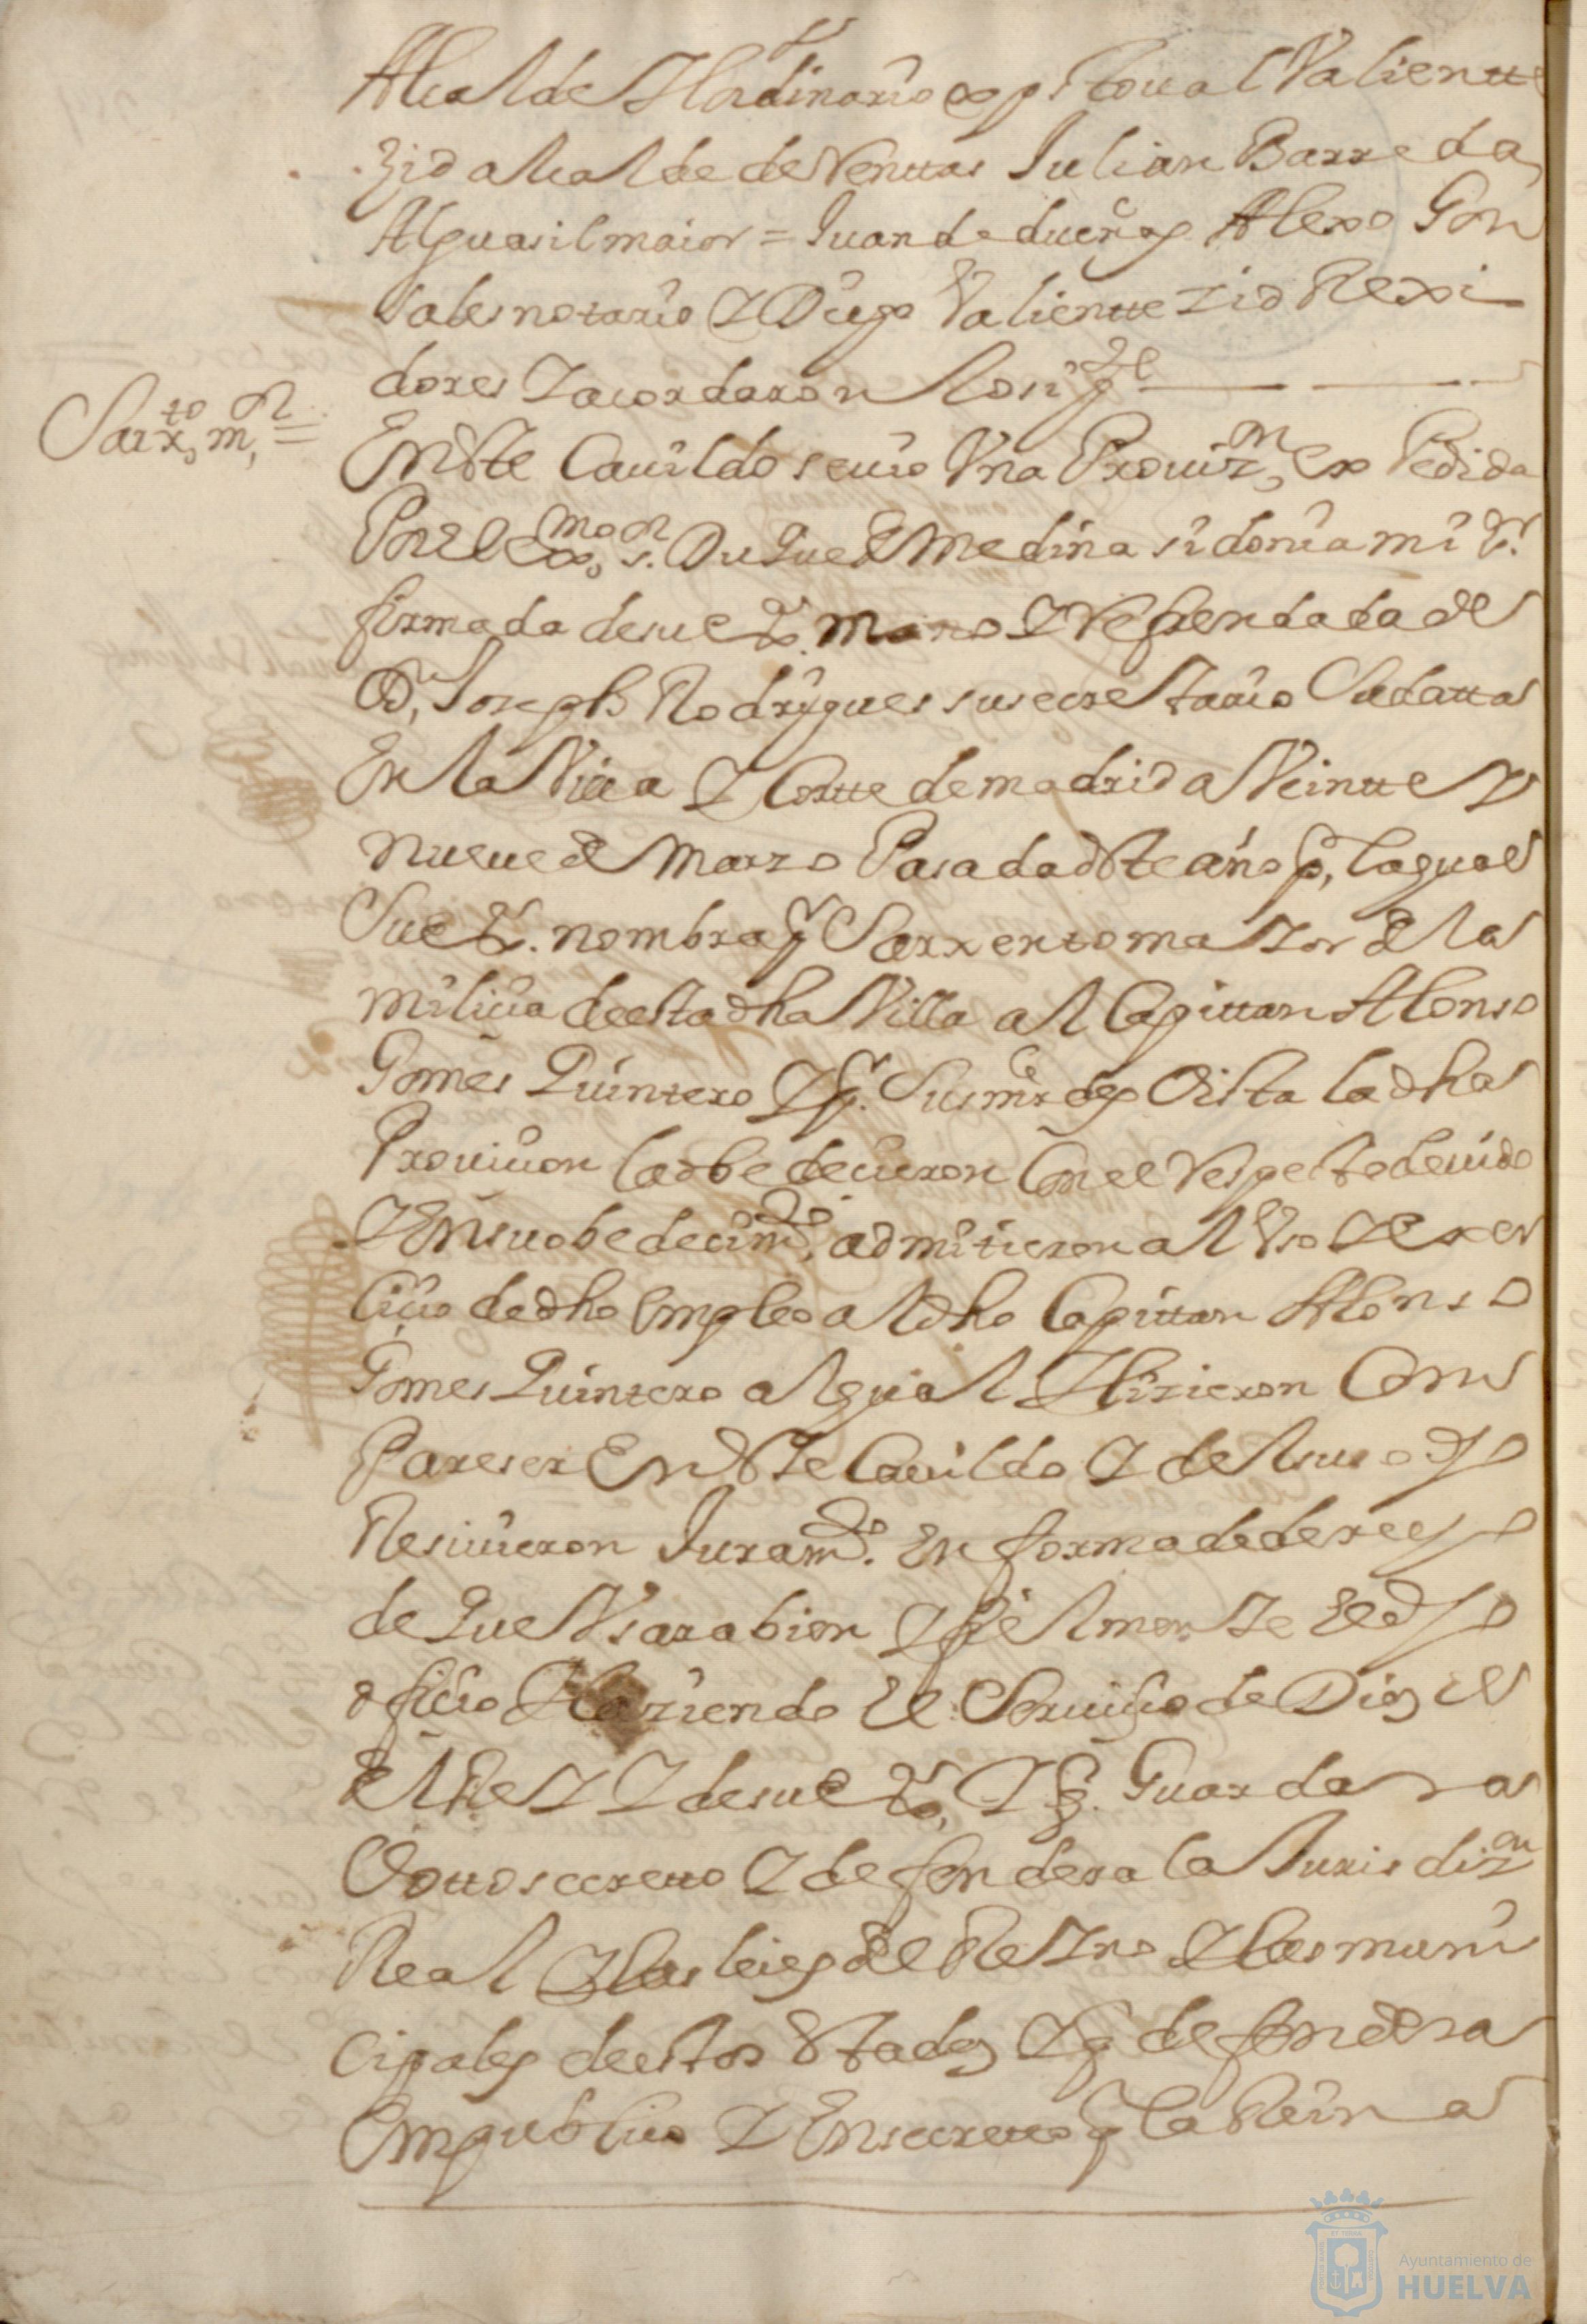 Alcalde Hordinario xpstoual Valiente
Zid alcalde de Venttas Julian Barreda
Alguasil maior = Juan de dueñas Alexo Gon
sales notario Y Diego Valientte Zid Rexi
dores Y acordaron lo sigte
Sarxto mr =
En Este Cauildo se uio Vna Provizn, ex Pedida
Por El exmo sr. Duque de Medina sidonia mi sr
firmada de su exa. mano Y Refrendada de
Dn, Joseph Rodrigues su secrettario Su datta
En la Villa Y Cortte de madrid a Veintte Y
nueue de Marzo Pasado deste año pr, la qual
Su exa. nombra pr Sarxento maYor de la
milicia de esta dha Villa al Capittan Alonso
Gomes Quintero Y pr. Sus mrzdes Vista la dha
Prouicion la obedecieron Con el Respecto deuido
Y En su obedecimto, admitieron al Vso Y exer
cicio de dho Empleo al dho Capittan Alonso
Gomes Quintero al qual Hizieron Com
Pareser En Este Cauildo Y del suso dho
Resiuieron Juramto. En forma de derecho
de que Vsara bien Y fielmente El dho
oficio Haziendo El Seruicio de Dios el
del ReY Y de su exa, Y q. Guardara
Votto secretto Y defendera la Jurisdizn
Real Y las leies del ReYno Y las muni
cipales de estos Estados Y q defendera
Em publico Y En secretto q la Reina
Ayuntamiento de
HUELVA